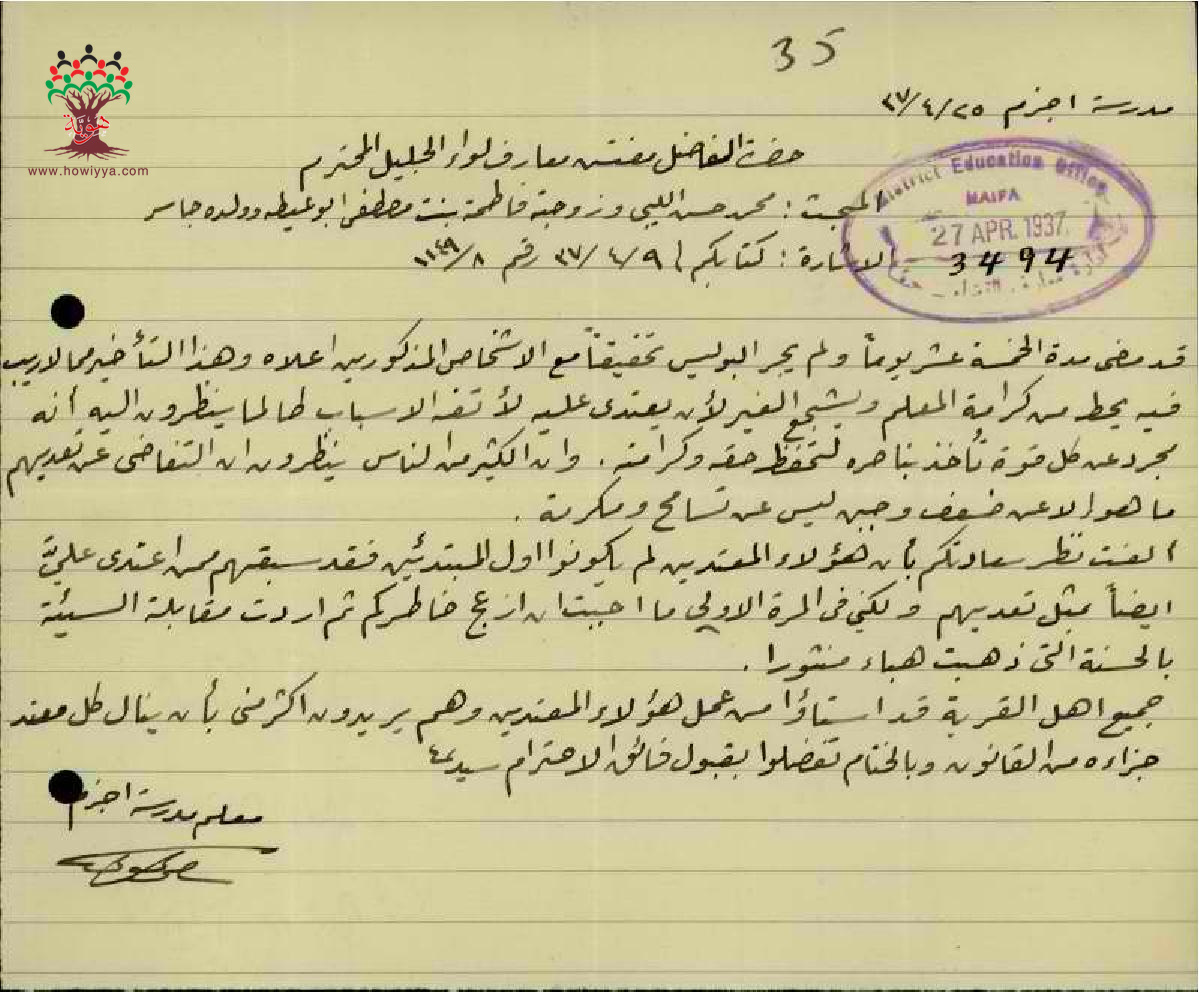 35
مدرسة اجزم ٣٧/٤/٢٥
هوية
www.howiyya.com
حضرة الفاضل مفتش معارف لواء الجليل المحترم
District Education Office
HAIFA
27 APR. 1937
3494
المبحث : محمد حسن اللبي وزوجته فاطمة بنت مصطفى ابو غيطه وولده جاسر
الاشارة : كتابكم ٣٧/٤/٩ رقم ١١٤٩/٨
قد مضى مدة الخمسة عشر يوماً ولم يجر البوليس تحقيقاً مع الاشخاص المذكورين اعلاه وهذا التأخير مما لاريب
فيه يحط من كرامة المعلم ويشجع الغير لأن يعتدى عليه لأتفه الاسباب طالما ينظرون اليه أنه
مجرد عن كل قوة تأخذ بناصره لتحفظ حقه وكرامته . وان الكثير من الناس ينظرون ان التغاضى عن تعديهم
ما هو الا عن ضعف وجبن ليس عن تسامح ومكرمة .
ألفت نظر سعادتكم بأن هؤلاء المعتدين لم يكونوا اول المبتدئين فقد سبقهم من اعتدى عليّ
ايضاً بمثل تعديهم ولكني فى المرة الاولى ما احببت ان ازعج خاطركم ثم اردت مقابلة السيئة
بالحسنة التى ذهبت هباء منثورا .
جميع اهل القرية قد استاؤا من عمل هؤلاء المعتدين وهم يريدون اكثر منى بأن ينال كل معتد
جزاءه من القانون وبالختام تفضلوا بقبول فائق الاحترام سيدي
معلم مدرسة اجزم